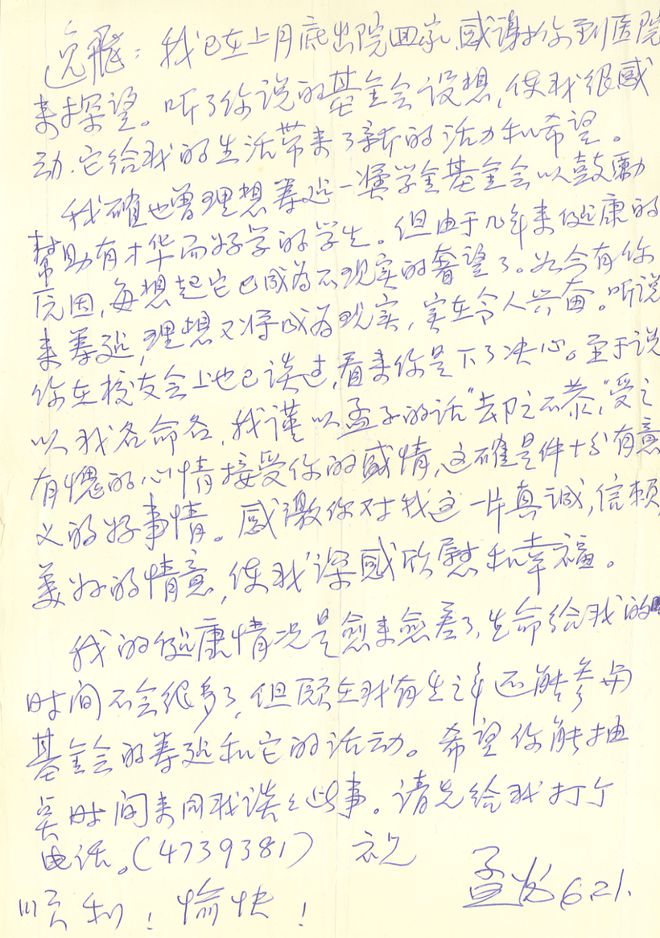 逸飛：我已在上月底出院回家，感谢你到医院
来探望。听了你说的基金会设想，使我很感
动.它给我的生活带来了新的活力和希望。
我確也曾理想筹建一奖学金基金会以鼓励
幫助有才华而好学的学生。但由于几年来健康的
原因，每想起它已成为不现实的奢望了。如今有你
来筹建，理想又将成为现实，实在令人兴奋。听说
你在校友会上也已谈过，看来你是下了决心。至于说
以我名命名，我谨以孟子的话“却之不恭”，受之
有愧的心情接受你的感情，这確是件十分有意
义的好事情。感激你对我这一片真诚，信赖
美好的情意，使我深感欣慰和幸福。
我的健康情况是愈来愈差了，生命给我的
时间不会很多了，但願在我有生之年还能参与
基金会的筹建和它的活动。希望你能抽
点时间来同我谈谈此事。请先给我打个
电话。(4739381) 祝
顺利！愉快！ 孟光 6.21.